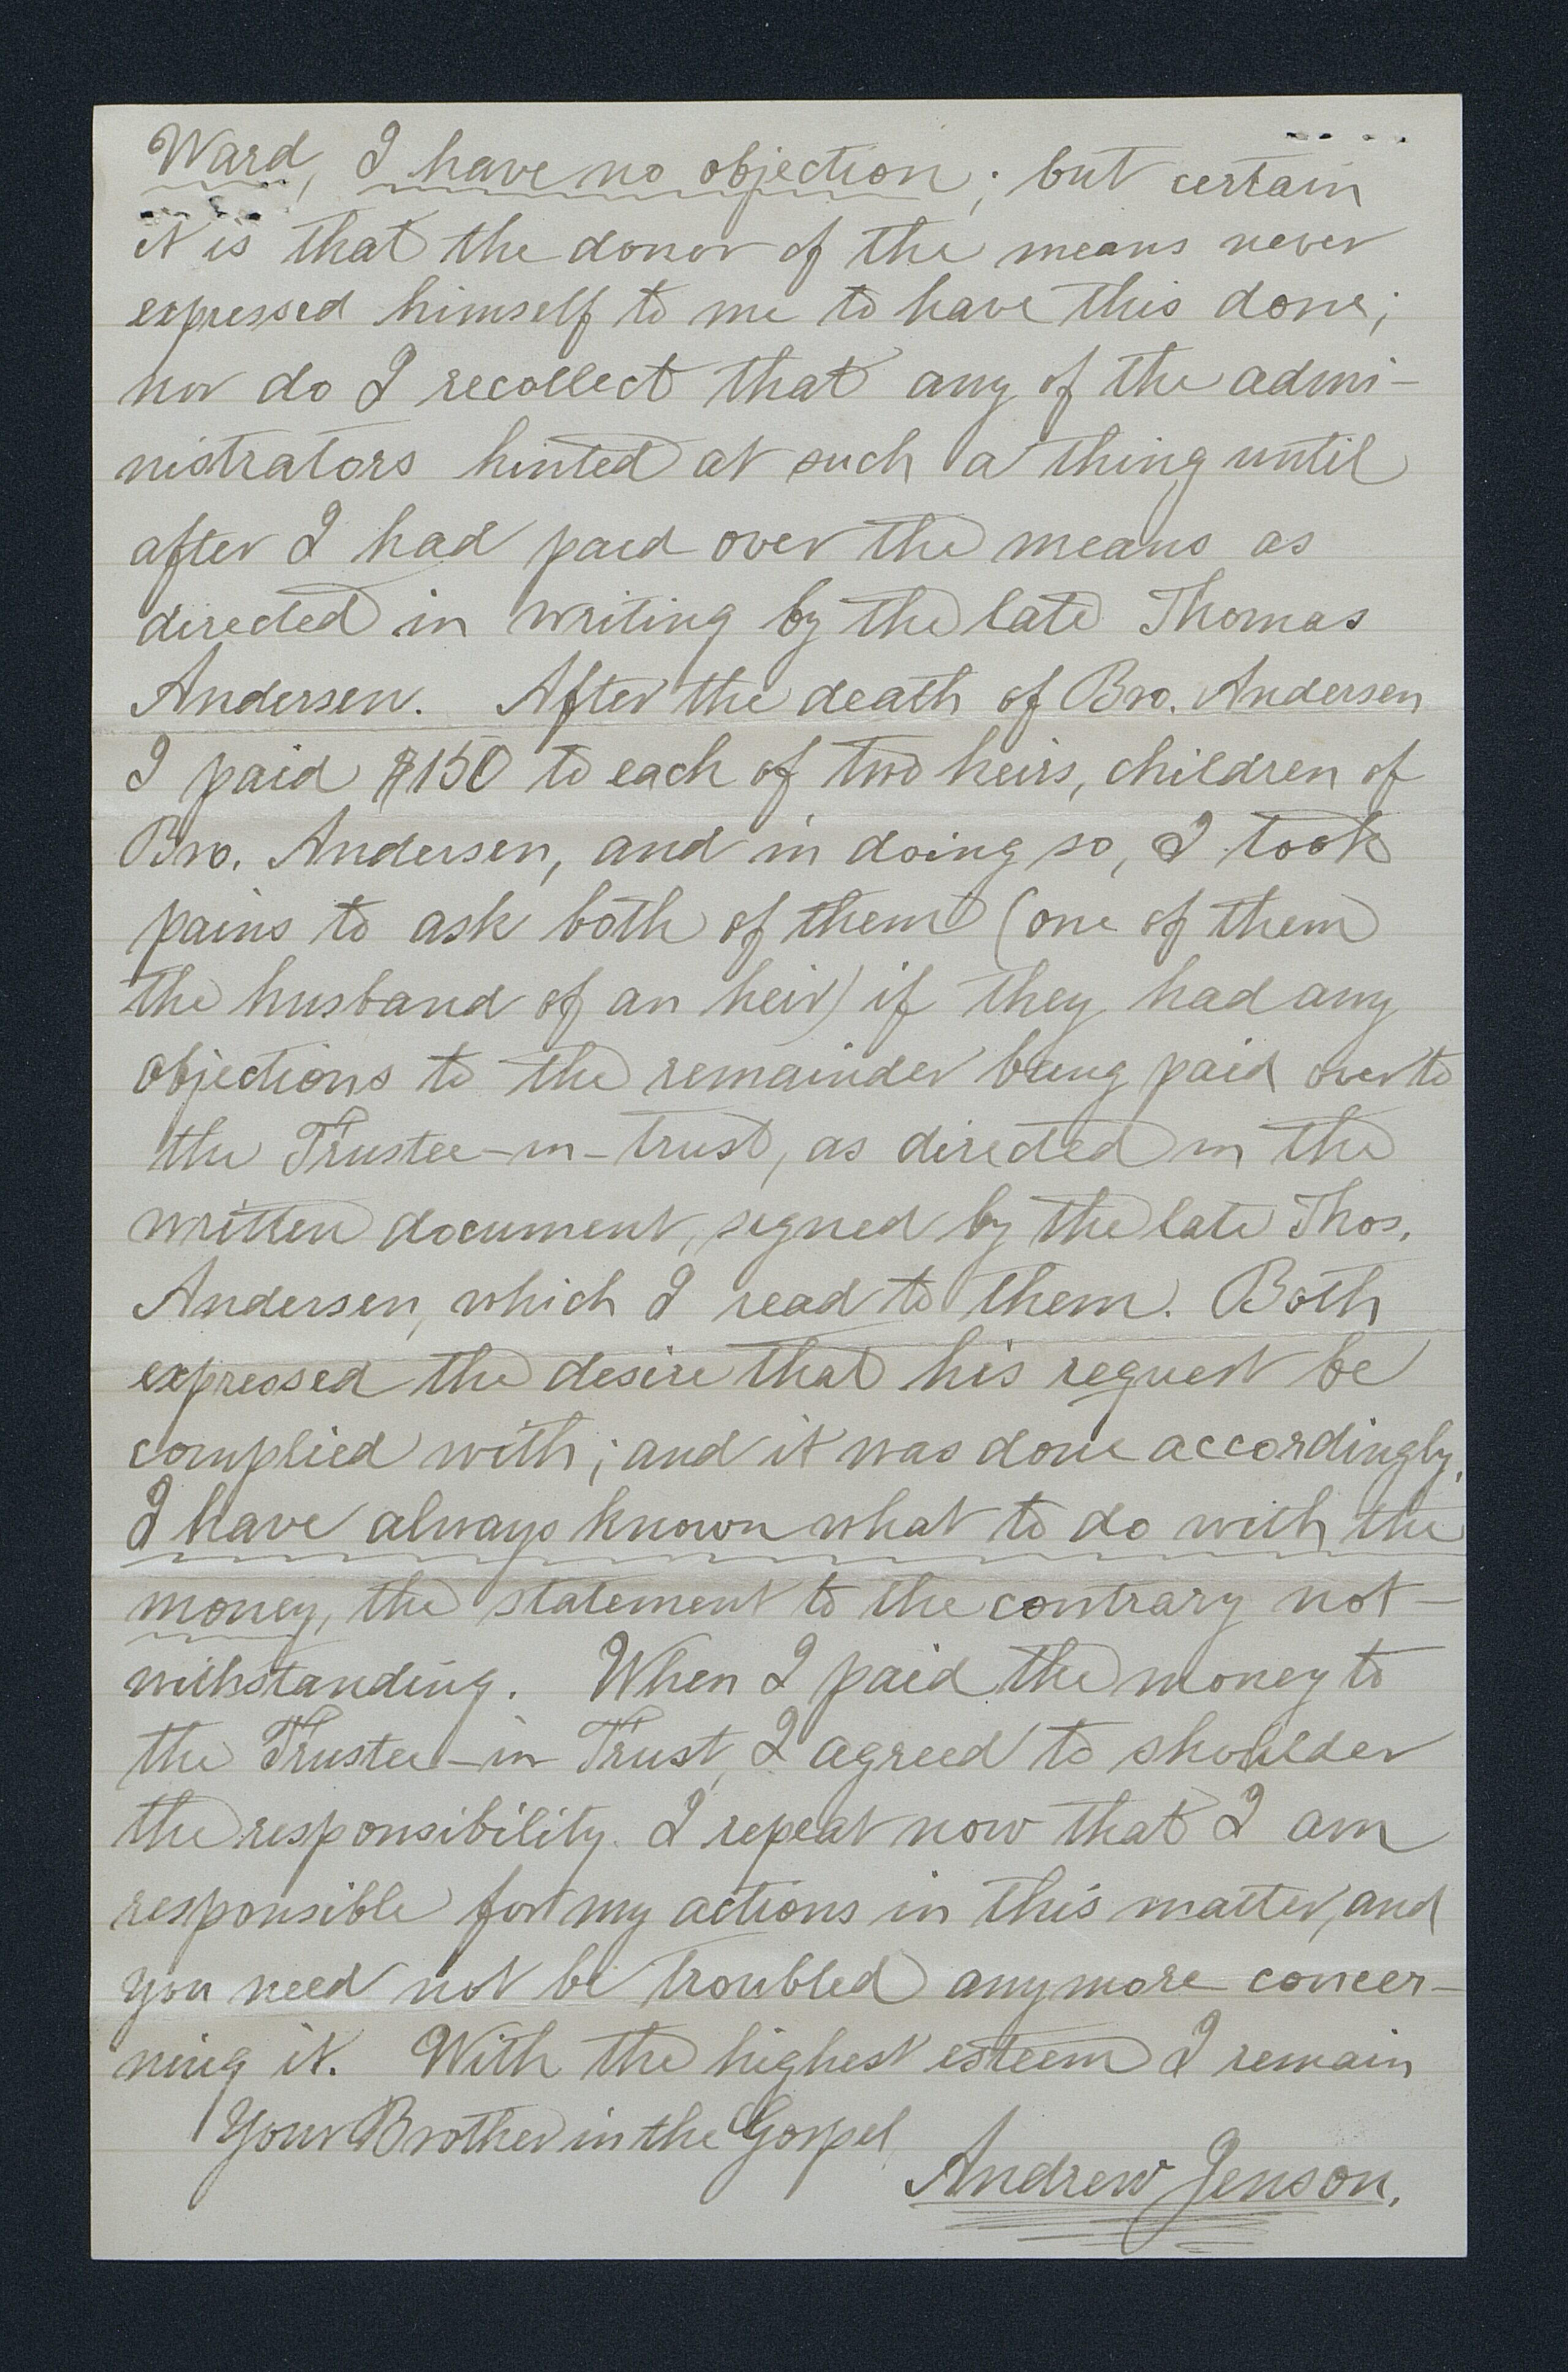 Ward, I have no objection; but certain
it is that the donor of the means never
expressed himself to me to have this done;
nor do I recollect that any of the admi-
nistrators hinted at such a thing until
after I had paid over the means as
directed in writing by the late Thomas
Andersen. After the death of Bro. Andersen
I paid $150 to each of two heirs, children of
Bro. Andersen, and in doing so, I took
pains to ask both of them (one of them
the husband of an heir) if they had any
objections to the remainder being paid over to
the Trustee-in-trust, as directed in the
written document, signed by the late Thos.
Andersen, which I read to them. Both
expressed the desire that his request be
complied with; and it was done accordingly.
I have always known what to do with the
money, the statement to the contrary not-
withstanding. When I paid the money to
the Trustee-in Trust, I agreed to shoulder
the responsibility. I repeat now that I am
responsible for my actions in this matter, and
you need not be troubled anymore concer-
ning it. With the highest esteem I remain
Your Brother in the Gospel,
Andrew Jenson.